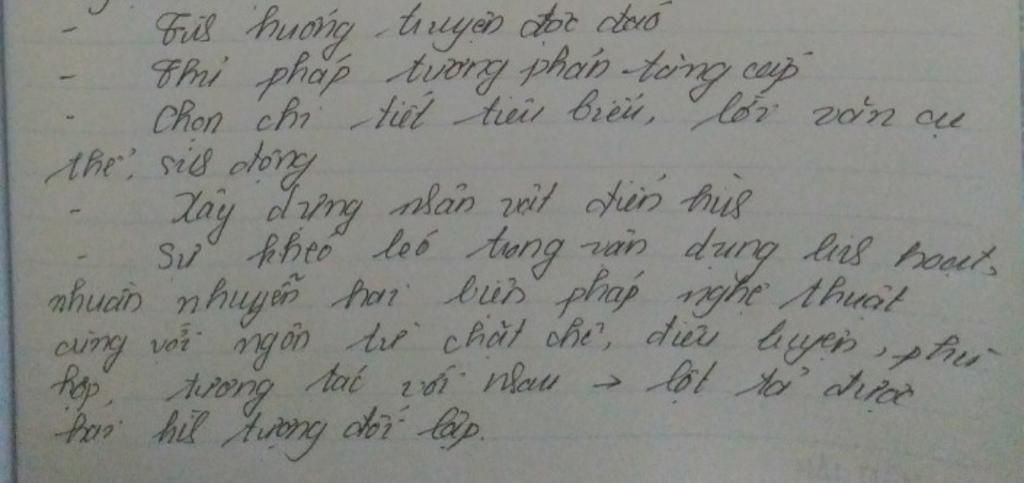 - Tìh huống truyện độc đáo
- Thủ pháp tương phản - tăng cấp
- Chọn chi tiết tiêu biểu, lời văn cụ
thể, sih động
- Xây dựng nhân vật điển hìh
- Sự khéo léo trong vận dụng lih hoạt,
nhuần nhuyễn hai biện pháp nghệ thuật
cùng với ngôn từ chặt chẽ, điêu luyện, phù
hợp, tương tác với nhau → lột tả được
hai hìh tượng đối lập.